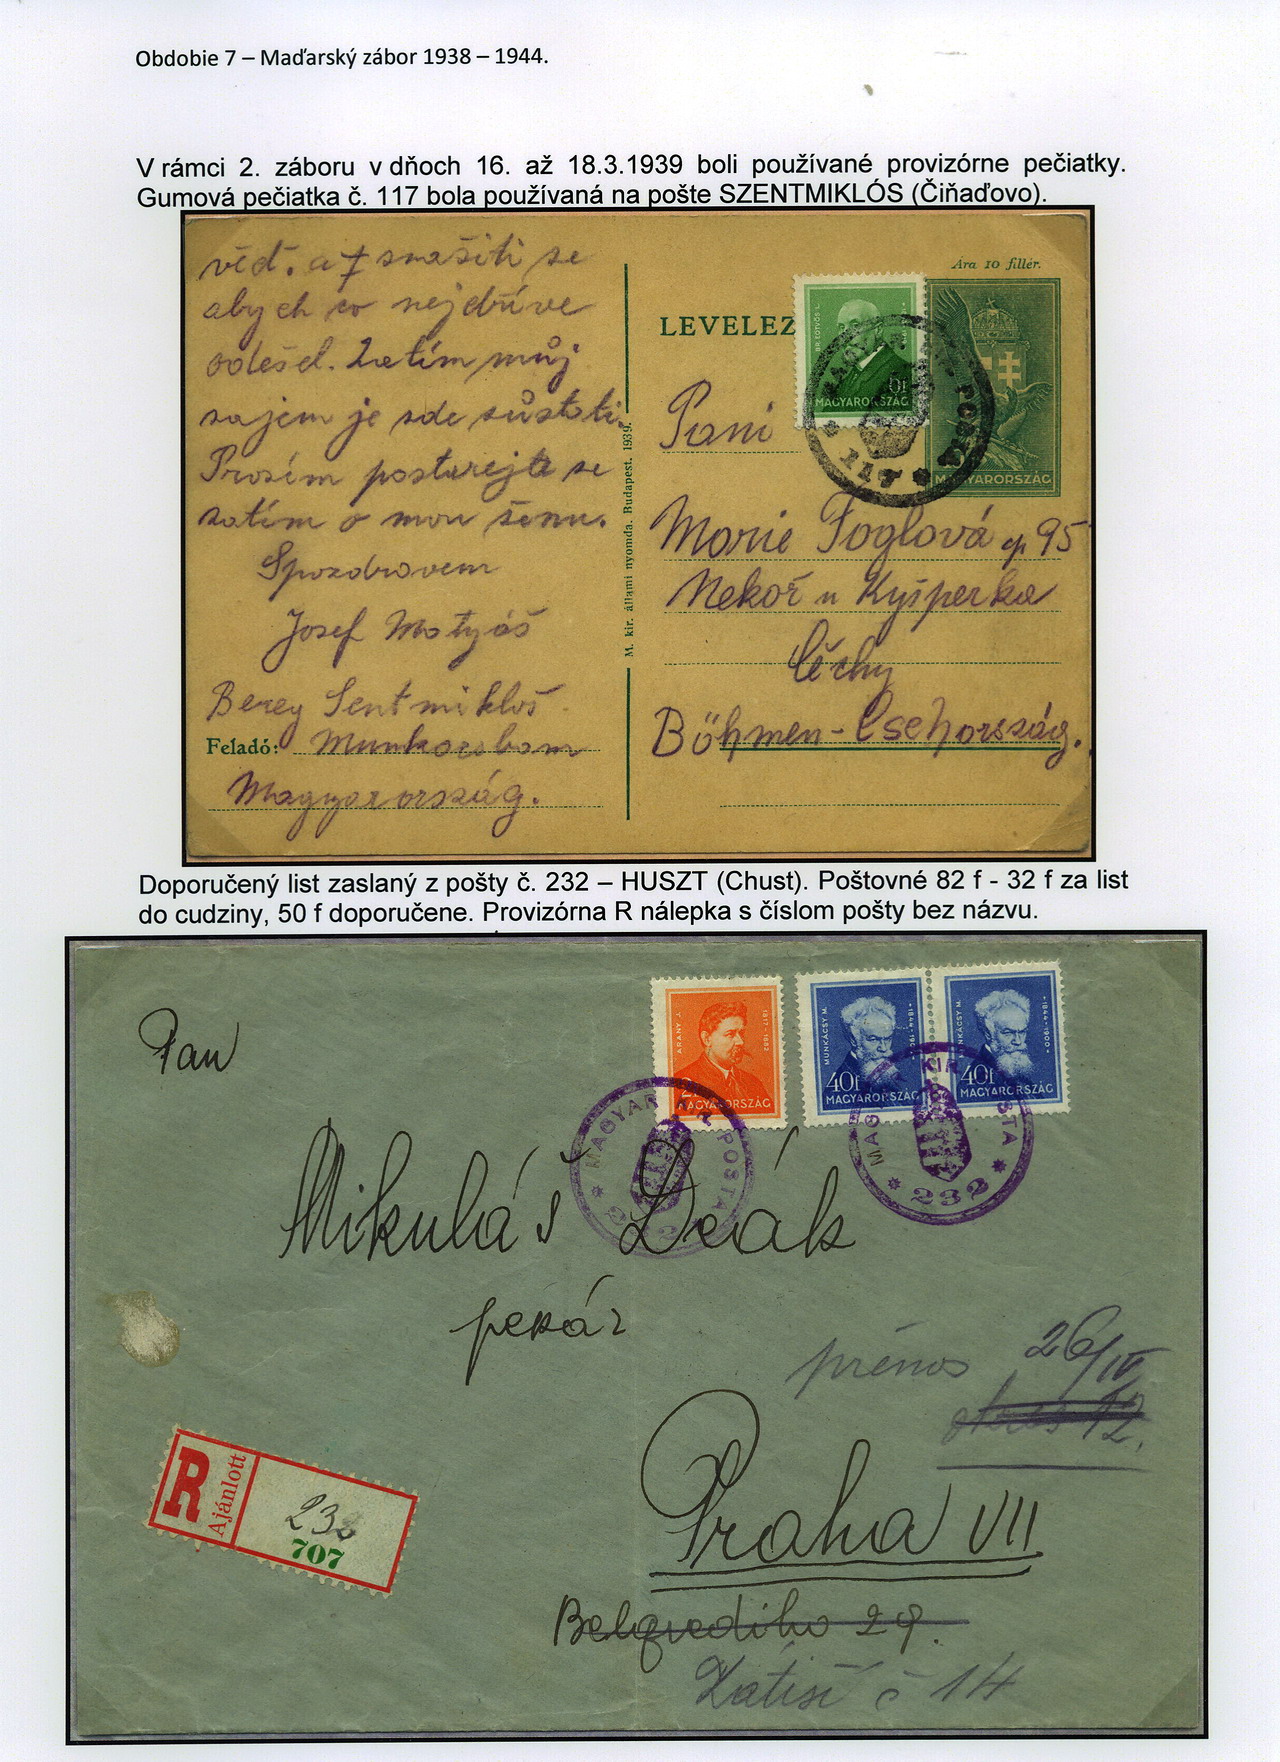 Obdobie 7 – Maďarský zábor 1938 – 1944.
V rámci 2. záboru v dňoch 16. až 18.3.1939 boli používané provizórne pečiatky.
Gumová pečiatka č. 117 bola používaná na pošte SZENTMIKLÓS (Čiňaďovo).
věd. a snažiti se
abych co nejdříve
odešel. Zatím můj
zajem je zde zůstati.
Prosím postarejte se
zatím o mou ženu.
Spozdravem
Josef Matyáš
Bereg Sentmikloš
Feladó: Munkacsbam
Magyarország.
M. kir. állami nyomda. Budapest. 1939.
Ára 10 fillér.
LEVELEZ
BR. EÖTVÖS L.
MAGYARORSZÁG
MAGYARORSZÁG
MAGYAR POSTA
117
Pani
Marie Foglová čp 95
Nekoř u Kyšperka
Čěchy
Böhmen - Csehország.
Doporučený list zaslaný z pošty č. 232 – HUSZT (Chust). Poštovné 82 f - 32 f za list
do cudziny, 50 f doporučene. Provizórna R nálepka s číslom pošty bez názvu.
Pan
ARANY J.
1817-1882
MAGYARORSZÁG
MUNKÁCSY M.
1844-1900
40f
MAGYARORSZÁG
MUNKÁCSY M.
1844-1900
40f
MAGYARORSZÁG
MAGYAR KIR. POSTA
MAGYAR KIR. POSTA
232
Mikuláš Deák
pekár
prénos 26/IV
okres 12.
R Ajánlott
232
707
Praha VII
Belgvediho 29.
Zatiší č 14